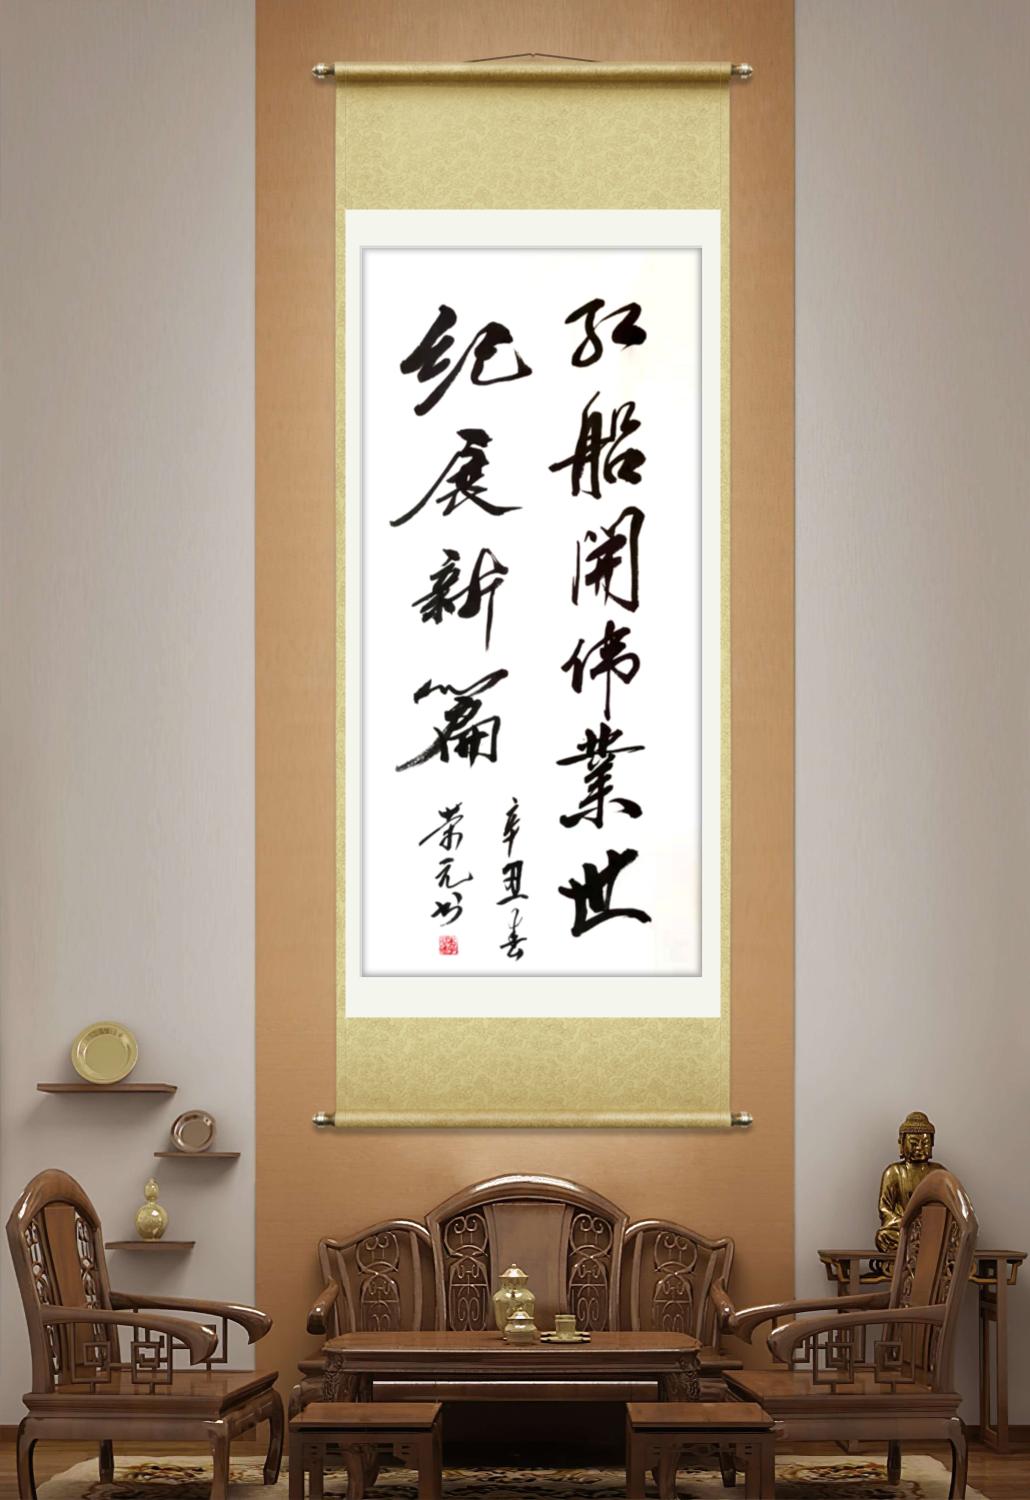 红船開伟業世
纪展新篇
辛丑春
荣元书